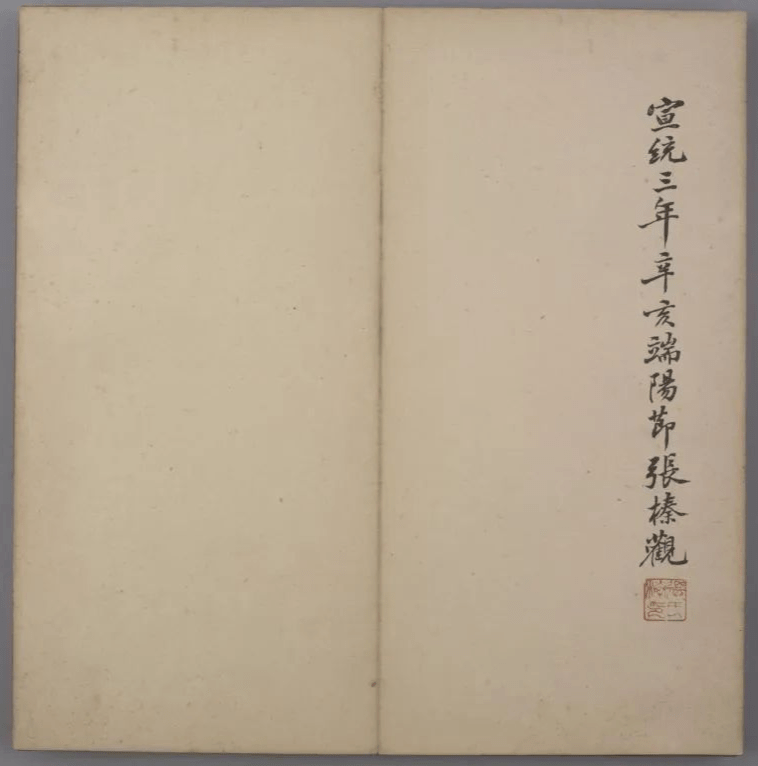 宣統三年辛亥端陽節張榛觀